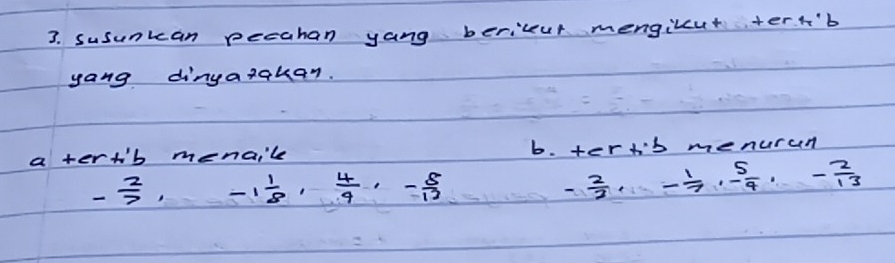 3. susunkan pecahan yang berikut mengikut tertib
yang dinyatakan.
a tertib menaik
b. tertib menurun
-2/7, -1 1/8, 4/9, -8/13
-2/7, -1/7, -5/9, -2/13